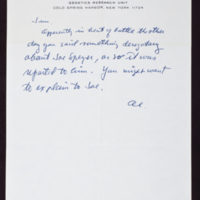 GENETICS RESEARCH UNIT
COLD SPRING HARBOR, NEW YORK 11724
Apparently in heat of battle the other
day you said something derogatory
about Joe Speyer, or so it was
reported to him. You might want
to explain to Joe.
Al.